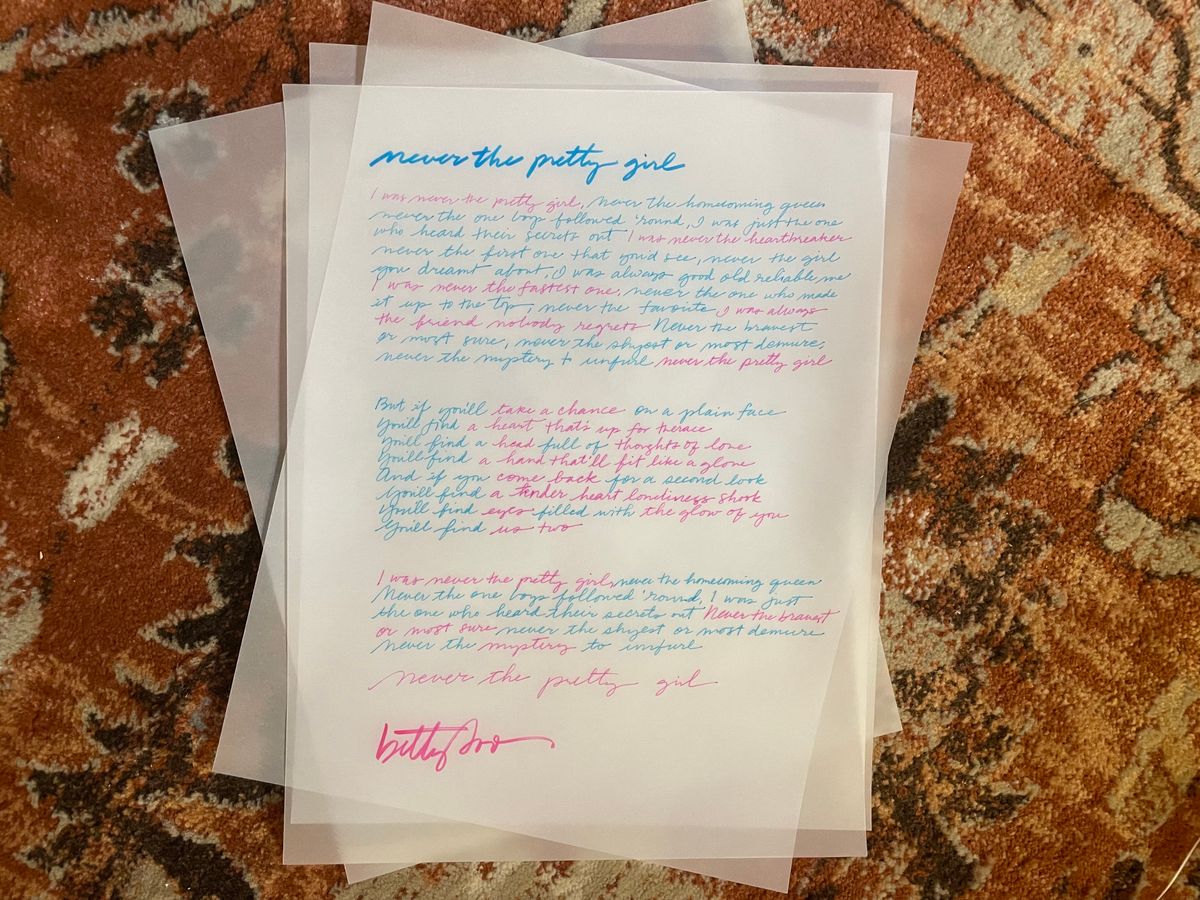 never the pretty girl
I was never the pretty girl, never the homecoming queen
never the one boys followed 'round, I was just the one
who heard their secrets out I was never the heartbreaker
never the first one that you'd see, never the girl
you dreamt about, I was always good old reliable me
I was never the fastest one, never the one who made
it up to the top, never the favorite I was always
the friend nobody regrets Never the bravest
or most sure, never the shyest or most demure,
never the mystery to unfurl never the pretty girl
But if you'll take a chance on a plain face
You'll find a heart that's up for the race
You'll find a head full of thoughts of love
You'll find a hand that'll fit like a glove
And if you come back for a second look
You'll find a tender heart loneliness shook
You'll find eyes filled with the glow of you
You'll find us two
I was never the pretty girl, never the homecoming queen
Never the one boys followed 'round, I was just
the one who heard their secrets out Never the bravest
or most sure never the shyest or most demure
never the mystery to unfurl
never the pretty girl
betty